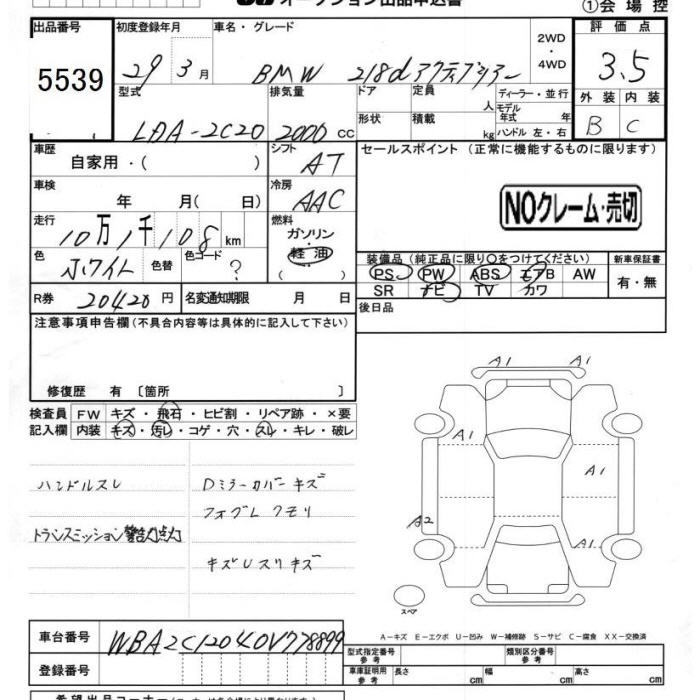 オークション出品申込書
①会場控
出品番号
5539
初度登録年月
29年3月
車名・グレード
BMW 218d アクティブツアラー
2WD
・
4WD
評価点
3.5
外装 内装
B C
型式
LDA-2C20
排気量
2000cc
ドア
形状
定員 人
積載 kg
ディーラー・並行
モデル年式 年
ハンドル 左・右
車歴
自家用・( )
シフト
AT
車検
年 月( 日)
冷房
AAC
走行
10万1千108km
燃料
ガソリン
・
軽油
( )
色
ホワイト
色替
色コード
?
R券 20420円
名変通知期限 月 日
セールスポイント (正常に機能するものに限ります)
NOクレーム・売切
装備品(純正品に限り○をつけてください)
PS PW ABS エアB AW
SR ナビ TV カワ
新車保証書
有・無
後日品
注意事項申告欄(不具合内容等は具体的に記入して下さい)
修復歴 有 〔箇所 〕
検査員 FW キズ・飛石・ヒビ割・リペア跡・×要
記入欄 内装 キズ・汚レ・コゲ・穴・スレ・キレ・破レ
ハンドルスレ
トランスミッション警告灯点灯
Dミラーカバーキズ
フォグLクモリ
キズUスリキズ
A1 A1
A1
A1
A2
A1
スペア
A－キズ E－エクボ U－凹み W－補修跡 S－サビ C－腐食 XX－交換済
車台番号
WBA2C12040V778899
登録番号
型式指定番号
参考
類別区分番号
参考
車庫証明用
参考
長さ cm
幅 cm
高さ cm